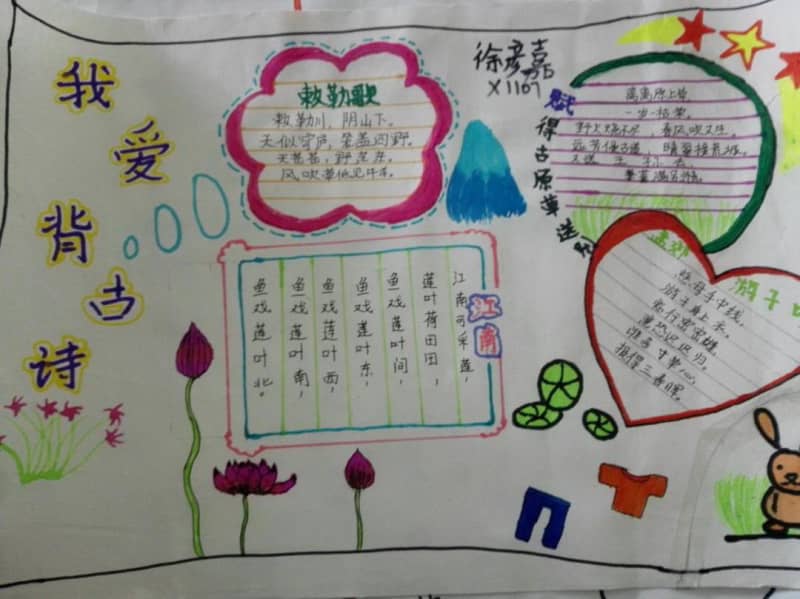 我爱背古诗
敕勒歌
敕勒川，阴山下。
天似穹庐，笼盖四野。
天苍苍，野茫茫。
风吹草低见牛羊。
徐彦嘉
X1107
赋得古原草送别
离离原上草，
一岁一枯荣。
野火烧不尽，春风吹又生。
远芳侵古道，晴翠接荒城。
又送王孙去，
萋萋满别情。
江南
江南可采莲，
莲叶荷田田，
鱼戏莲叶间，
鱼戏莲叶东，
鱼戏莲叶西，
鱼戏莲叶南，
鱼戏莲叶北。
孟郊 游子
慈母手中线，
游子身上衣。
临行密密缝，
意恐迟迟归。
谁言寸草心，
报得三春晖。